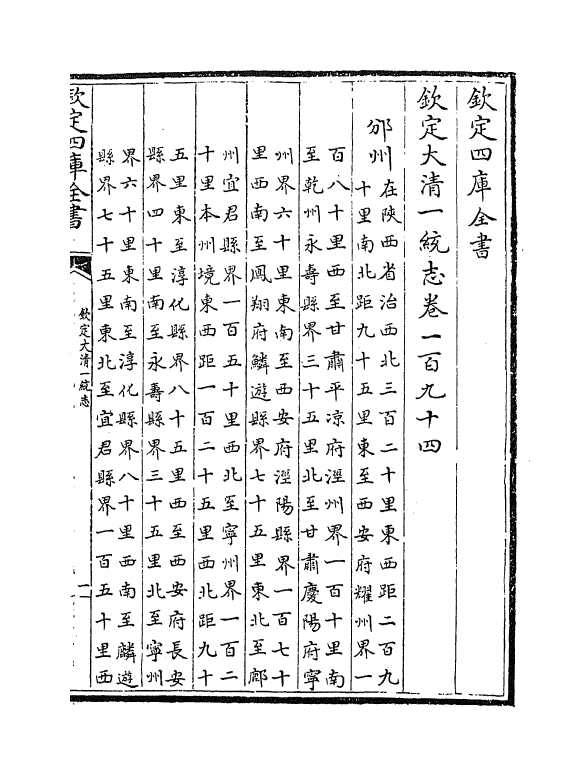 欽定四庫全書
欽定大清一統志卷一百九十四
邠州
在陜西省治西北三百二十里東西距二百九
十里南北距九十五里東至西安府耀州界一
百八十里西至甘肅平凉府涇州界一百十里南
至乾州永壽縣界三十五里北至甘肅慶陽府寧
州界六十里東南至西安府涇陽縣界一百七十
里西南至鳳翔府鱗遊縣界七十五里東北至鄜
州宜君縣界一百五十里西北至寧州界一百二
十里本州境東西距一百二十五里西北距九十
五里東至淳化縣界八十五里西至西安府長安
縣界四十里南至永壽縣界三十五里北至寧州
界六十里東南至淳化縣界八十里西南至麟遊
縣界七十五里東北至宜君縣界一百五十里西
欽定四庫全書
欽定大清一統志
一